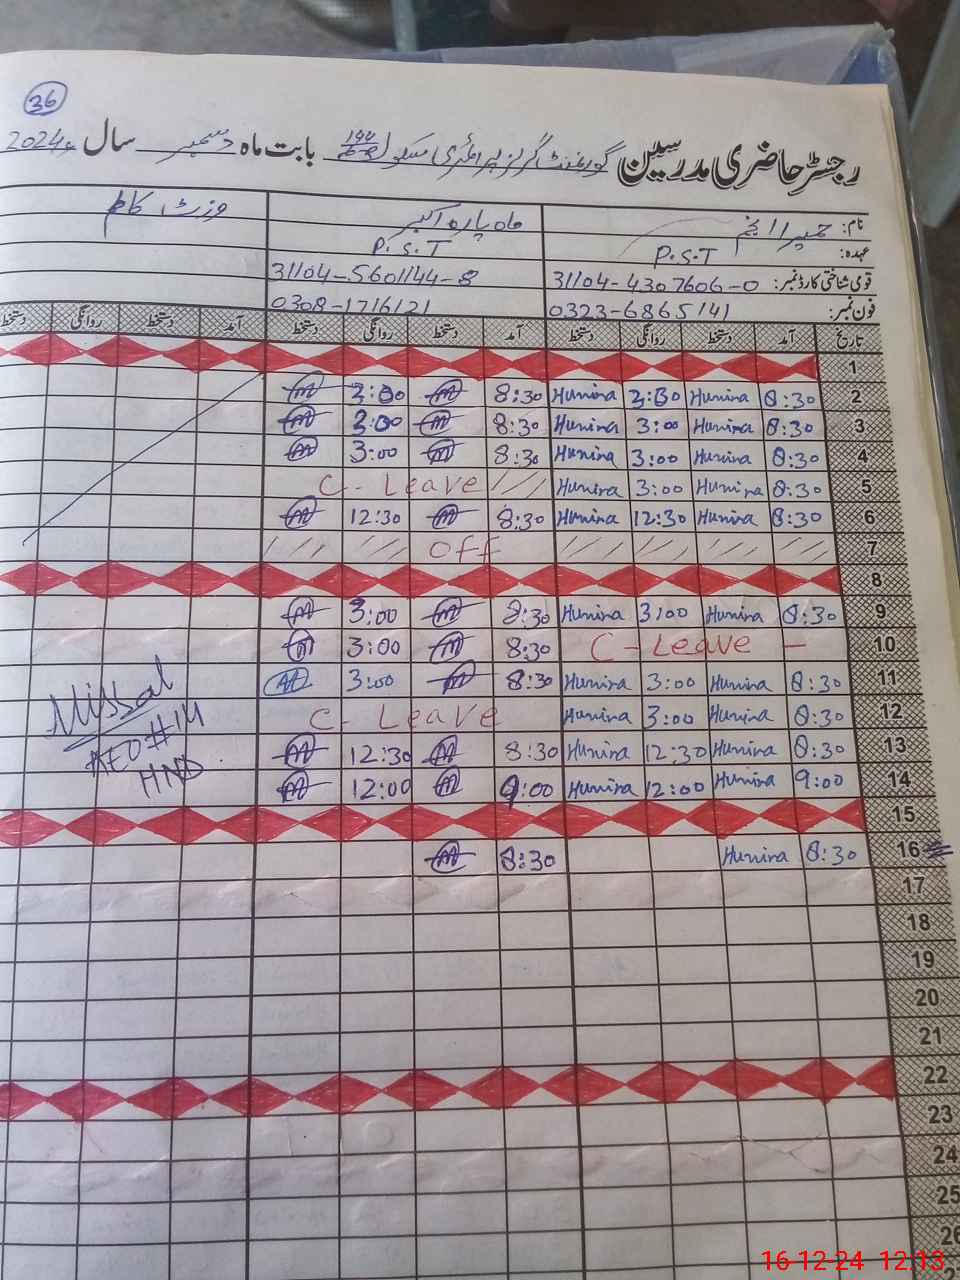 36
رجسٹر حاضری مدرسین گورنمنٹ گرلز پرائمری سکول 144 بابت ماہ دسمبر سال 2024ء
نام: حمیرا انجم ماہ پارہ اکبر وزٹ کالم
عہدہ: P.S.T P.S.T
قومی شناختی کارڈ نمبر: 31104-4307606-0 31104-5601144-8
فون نمبر: 0323-6865141 0308-1716121
تاریخ آمد دستخط روانگی دستخط آمد دستخط روانگی دستخط آمد دستخط روانگی دستخط
1
2 8:30 Humira 3:00 Humira 8:30 3:00
3 8:30 Humira 3:00 Humira 8:30 3:00
4 8:30 Humira 3:00 Humira 8:30 3:00
5 8:30 Humira 3:00 Humira C- Leave
6 8:30 Humira 12:30 Humira 8:30 12:30
7 Off
8
9 8:30 Humira 3:00 Humira 8:30 3:00
10 C-Leave - 8:30 3:00
11 8:30 Humira 3:00 Humira 8:30 3:00
12 8:30 Humira 3:00 Humira C- Leave
13 8:30 Humira 12:30 Humira 8:30 12:30
14 9:00 Humira 12:00 Humira 9:00 12:00
AEO#14
HND
15
16 8:30 Humira 8:30
17
18
19
20
21
22
23
24
25
26
16-12-24 12:13